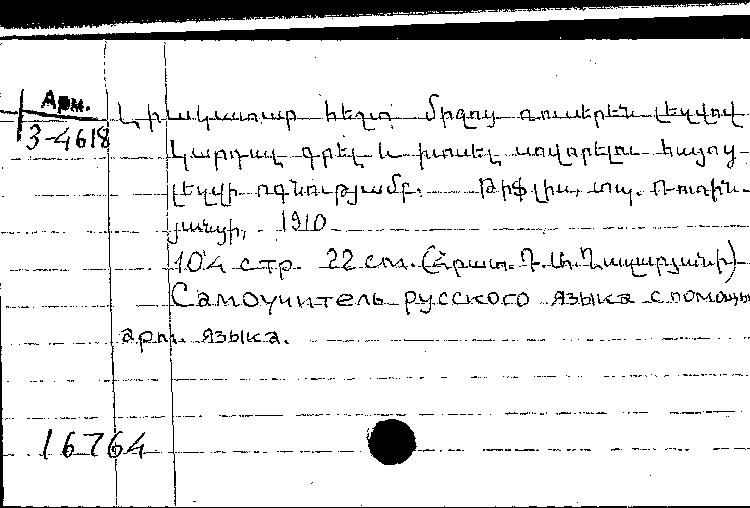 Арм.
3-4618
Լիակատար հեշտ միջոց ռուսերեն լեզվով
կարդալ գրել և խոսել սովորելու հայոց
լեզվի օգնությամբ. Թիֆլիս, տպ.
յանցի, 1910
104 стр. 22 см. (Հրատ. Դ. Ղազարյանի)
Самоучитель русского языка с помощью
арм. языка.
16764